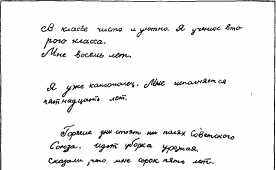 В классе чисто и уютно. Я ученик вто
рого класса.
Мне восемь лет.
Я уже комсомолец. Мне исполняется
пятнадцать лет.
Горячие дни стоят на полях Советского
Союза. Идет уборка урожая.
сказали, что, мне сорок пять лет.